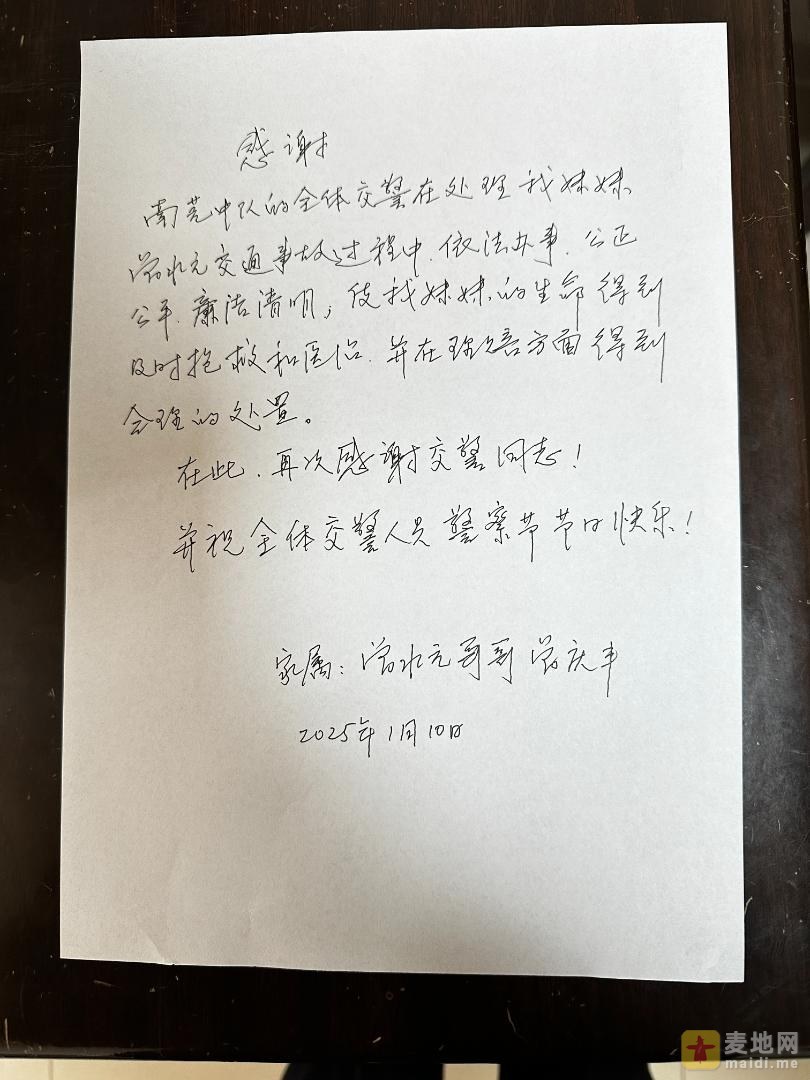 感谢
南莞中队的全体交警在处理我妹妹
曾水元交通事故过程中、依法办事、公正
公平、廉洁清明，使我妹妹的生命得到
及时抢救和医治、并在理赔方面得到
合理的处置。
在此、再次感谢交警同志！
并祝全体交警人员警察节节日快乐！
家属：曾水元哥哥曾庆丰
2025年1月10日
麦地网
maidi.me